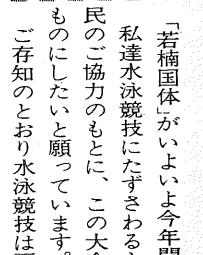 「若楠国体」がいよいよ今年開
私達水泳競技にたずさわる
民のご協力のもとに、この大会
ものにしたいと願っています。
ご存知のとおり水泳競技は